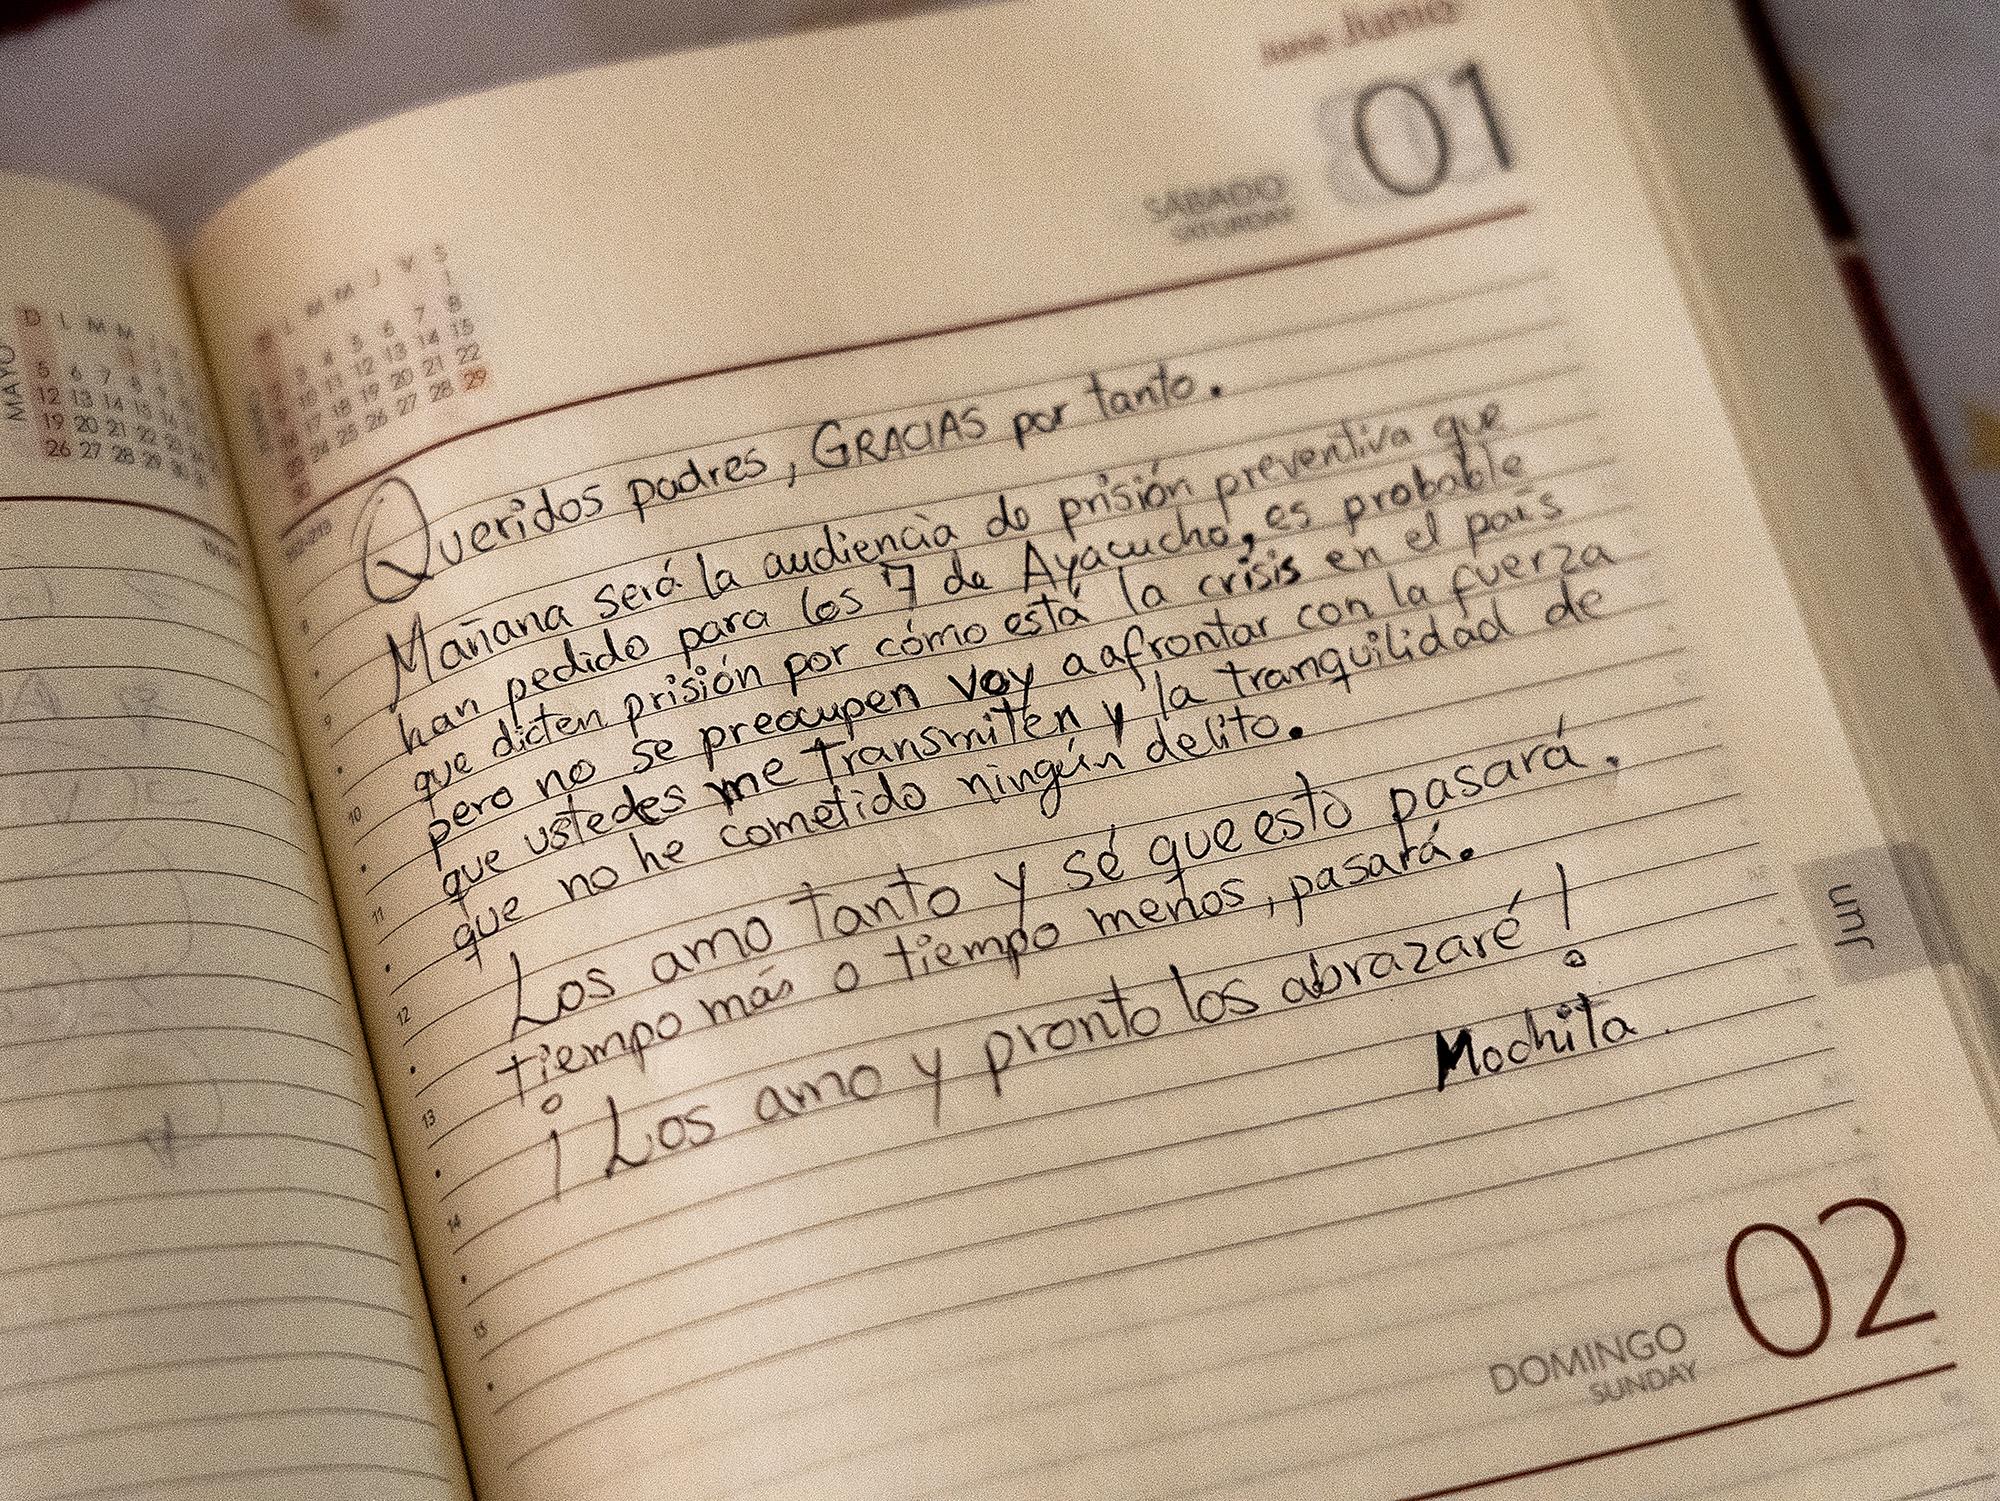 June Junio
01
SÁBADO
SATURDAY
L M M J V S
1
3 4 5 6 7 8
10 11 12 13 14 15
17 18 19 20 21 22
24 25 26 27 28 29
MAYO
D L M M J
5 6 7 8
12 13 14 15
19 20 21 22
26 27 28 29 30
Queridos padres, GRACIAS por tanto.
Mañana será la audiencia de prisión preventiva que
han pedido para los 7 de Ayacucho, es probable
que dicten prisión por cómo está la crisis en el país
pero no se preocupen voy a afrontar con la fuerza
que ustedes me transmiten y la tranquilidad de
que no he cometido ningún delito.
Los amo tanto y sé que esto pasará,
tiempo más o tiempo menos, pasará.
¡Los amo y pronto los abrazaré!
Mochita.
8
9
10
11
12
13
14
15
Jun
02
DOMINGO
SUNDAY